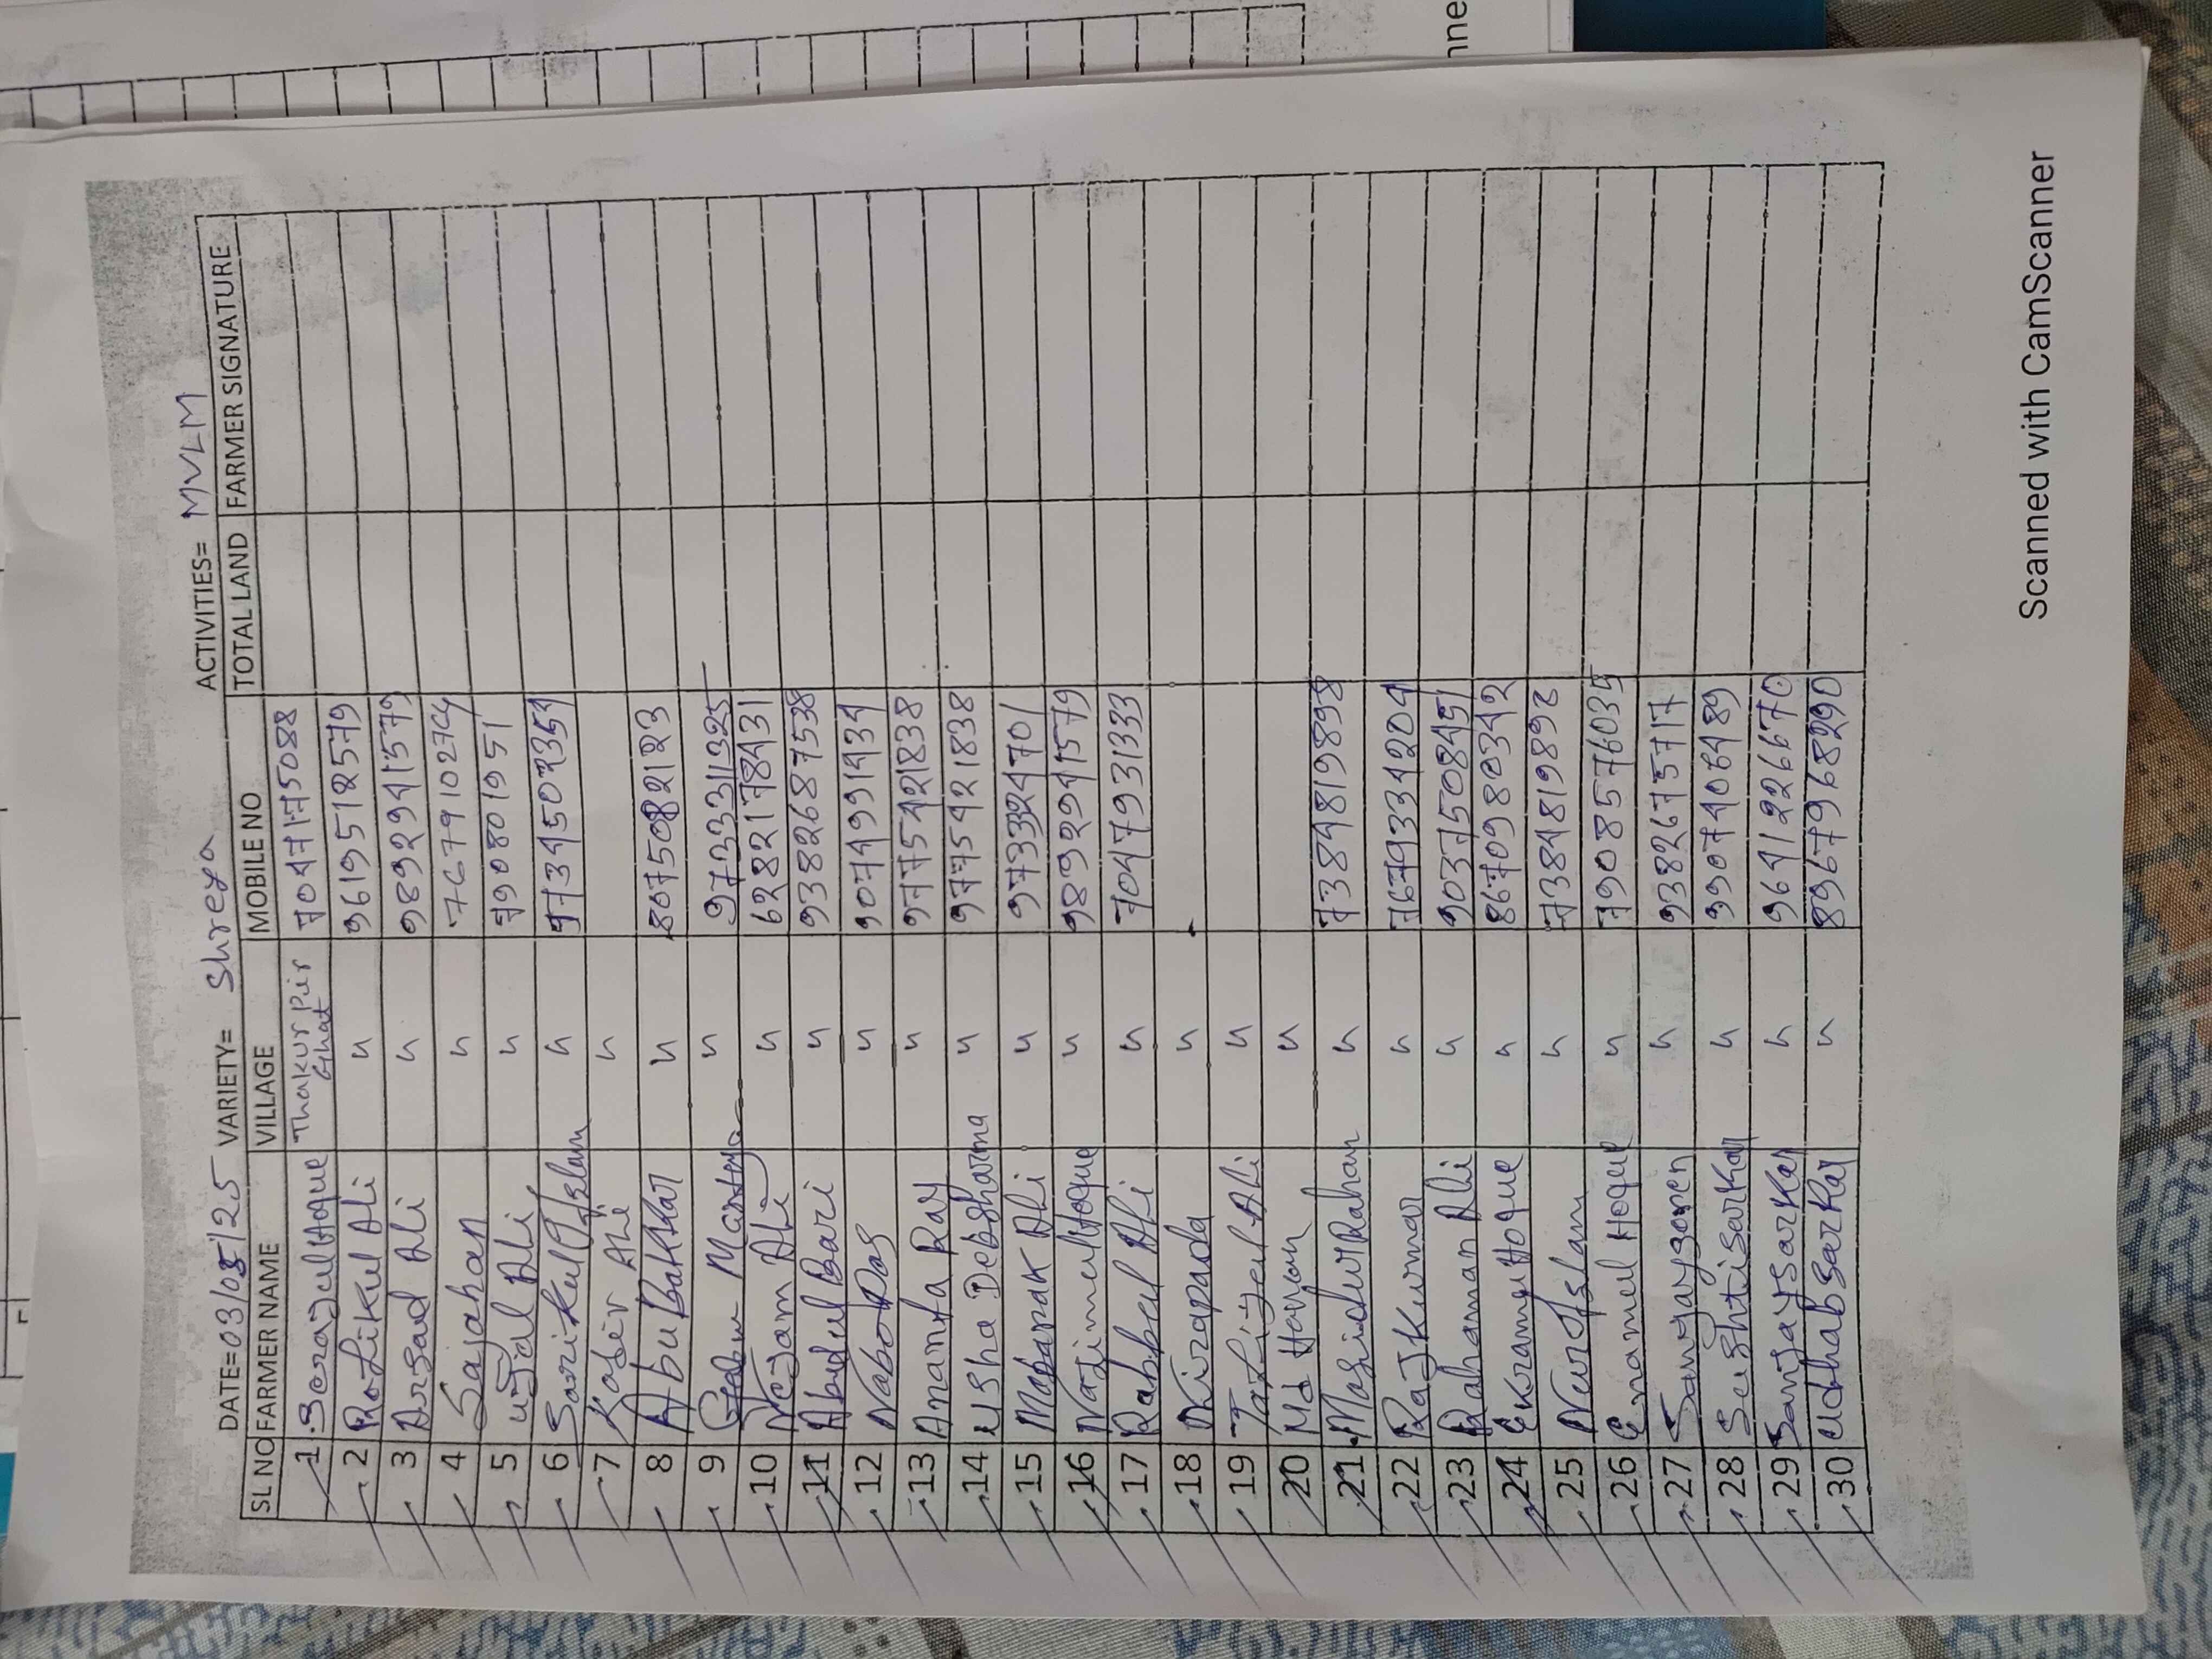 DATE=03/08/25 VARIETY= Shreya ACTIVITIES= MVLM
SL NO FARMER NAME VILLAGE MOBILE NO TOTAL LAND FARMER SIGNATURE
1 Serajul Hoque Thakur pir Ghat 7047175088
2 Rofikul Ali " 9619512579
3 Arsad Ali " 9892941579
4 Sajahan " 7679102774
5 Ujal Ali " 7908019951
6 Sarikul Islam " 9734502351
7 Kaser Ali "
8 Abu Bakkar " 8075082123
9 " 9733311325
10 Nejam Ali " 6282178431
11 Abdul Bari " 9382687538
12 Nabo Das " 9074991434
13 Ananta Ray " 9775421838
14 Usha Debsharma " 9775421838
15 Mabarak Ali " 9733324701
16 Najimul Hoque " 9892941579
17 Rabbul Ali " 7047931333
18 "
19 Tafijul Ali "
20 Md "
21 Masidur Rahan " 7384819898
22 Raj Kumar " 7679334204
23 Rahaman Ali " 9037508451
24 Ekramul Hoque " 8670980342
25 Nur Islam " 7384819898
26 Enamul Hoque " 7908576035
27 " 9382675717
28 Sarkar " 9907406489
29 Sanjay Sarkar " 9641226670
30 Udhab Sarkar " 8967968290
Scanned with CamScanner